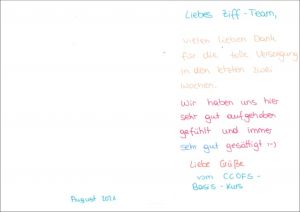 Liebes Ziff-Team,
vielen lieben Dank
für die tolle Versorgung
in den letzten zwei
Wochen.
Wir haben uns hier
sehr gut aufgehoben
gefühlt und immer
sehr gut gesättigt :-)
Liebe Grüße
vom CCOFS-
Basis-Kurs
August 2021